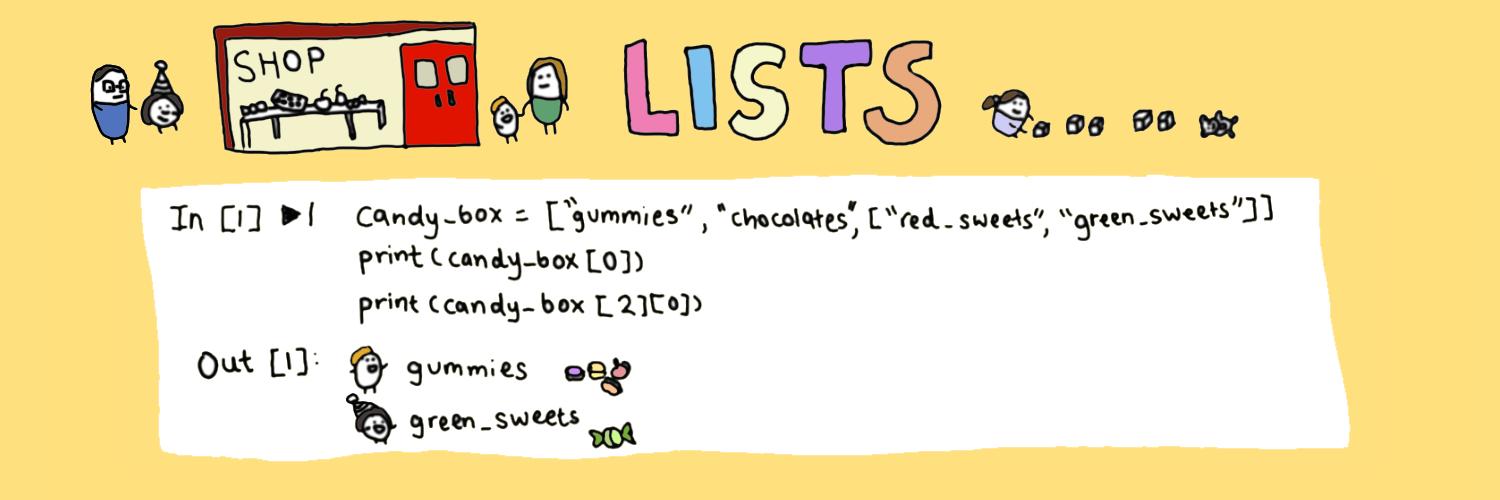 SHOP
LISTS
In [1] ▶| candy_box = ["gummies", "chocolates", ["red_sweets", "green_sweets"]]
print(candy_box[0])
print(candy_box[2][0])
Out [1]: gummies
green_sweets